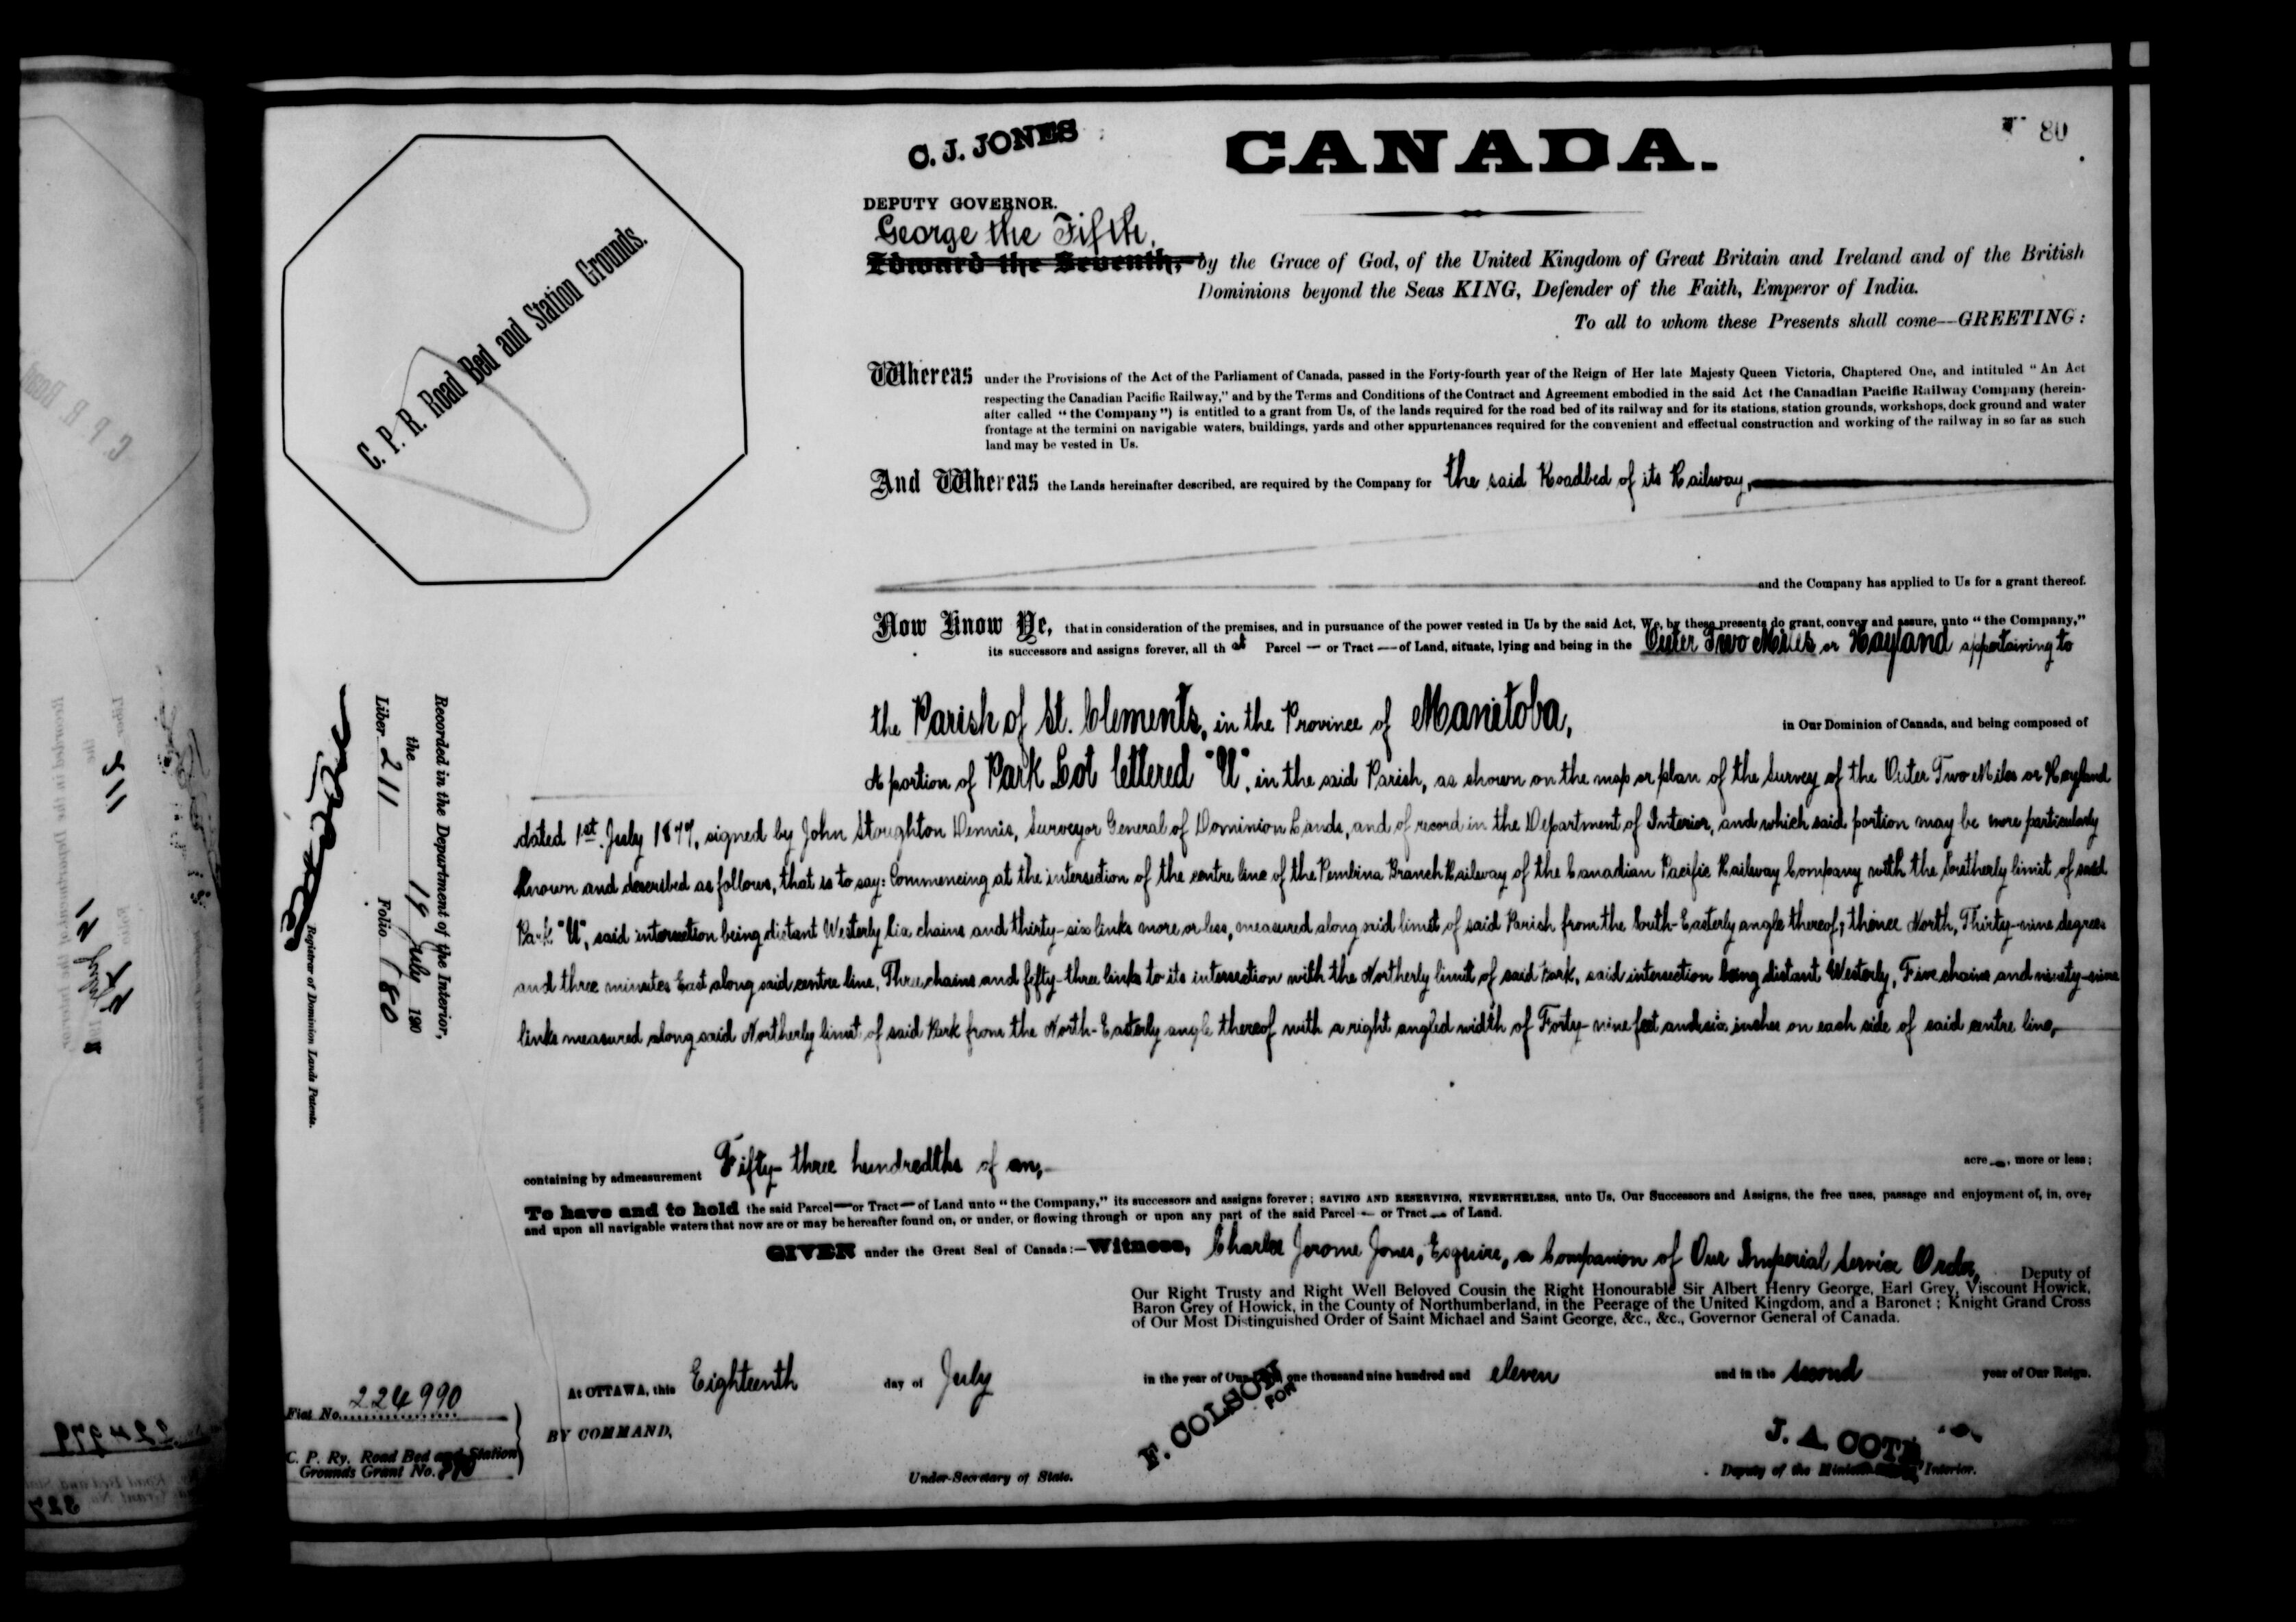 C. J. JONES
CANADA.
80
DEPUTY GOVERNOR.
George the Fifth,
Edward the Seventh, by the Grace of God, of the United Kingdom of Great Britain and Ireland and of the British
Dominions beyond the Seas KING, Defender of the Faith, Emperor of India.
To all to whom these Presents shall come—GREETING:
C. P. R. Road Bed and Station Grounds.
Whereas under the Provisions of the Act of the Parliament of Canada, passed in the Forty-fourth year of the Reign of Her late Majesty Queen Victoria, Chaptered One, and intituled "An Act
respecting the Canadian Pacific Railway," and by the Terms and Conditions of the Contract and Agreement embodied in the said Act the Canadian Pacific Railway Company (herein-
after called "the Company") is entitled to a grant from Us, of the lands required for the road bed of its railway and for its stations, station grounds, workshops, dock ground and water
frontage at the termini on navigable waters, buildings, yards and other appurtenances required for the convenient and effectual construction and working of the railway in so far as such
land may be vested in Us.
And Whereas the Lands hereinafter described, are required by the Company for the said Roadbed of its Railway,
and the Company has applied to Us for a grant thereof.
Now Know Ye, that in consideration of the premises, and in pursuance of the power vested in Us by the said Act, We, by these presents do grant, convey and assure, unto "the Company,"
its successors and assigns forever, all that Parcel — or Tract — of Land, situate, lying and being in the Outer Two Miles or Hayland appertaining to
the Parish of St. Clements, in the Province of Manitoba, in Our Dominion of Canada, and being composed of
A portion of Park Lot lettered "U", in the said Parish, as shown on the map or plan of the Survey of the Outer Two Miles or Hayland
dated 1st July 1877, signed by John Stoughton Dennis, Surveyor General of Dominion Lands, and of record in the Department of Interior, and which said portion may be more particularly
known and described as follows, that is to say: Commencing at the intersection of the centre line of the Pembina Branch Railway of the Canadian Pacific Railway Company with the Southerly limit of said
Park "U", said intersection being distant Westerly Six chains and thirty-six links more or less, measured along said limit of said Parish from the South-Easterly angle thereof; thence North, Thirty-nine degrees
and three minutes East along said centre line, Three chains and fifty-three links to its intersection with the Northerly limit of said Park, said intersection being distant Westerly, Five chains and ninety-nine
links measured along said Northerly limit of said Park from the North-Easterly angle thereof with a right angled width of Forty-nine feet and six inches on each side of said centre line,
containing by admeasurement Fifty-three hundredths of an, acre, more or less;
To have and to hold the said Parcel — or Tract — of Land unto "the Company," its successors and assigns forever; SAVING AND RESERVING, NEVERTHELESS, unto Us, Our Successors and Assigns, the free uses, passage and enjoyment of, in, over
and upon all navigable waters that now are or may be hereafter found on, or under, or flowing through or upon any part of the said Parcel — or Tract — of Land.
GIVEN under the Great Seal of Canada:—Witness, Charles Jerome Jones, Esquire, a Companion of Our Imperial Service Order, Deputy of
Our Right Trusty and Right Well Beloved Cousin the Right Honourable Sir Albert Henry George, Earl Grey, Viscount Howick,
Baron Grey of Howick, in the County of Northumberland, in the Peerage of the United Kingdom, and a Baronet; Knight Grand Cross
of Our Most Distinguished Order of Saint Michael and Saint George, &c., &c., Governor General of Canada.
At OTTAWA, this Eighteenth day of July in the year of Our one thousand nine hundred and eleven and in the second year of Our Reign.
BY COMMAND,
F. COLSON
FOR
Under-Secretary of State.
J. A. COTE
Deputy of the Minister Interior.
Recorded in the Department of the Interior,
the 19 July 190
Liber 211 Folio 180
Registrar of Dominion Lands Patents.
Fiat No. 224990
C. P. Ry. Road Bed and Station
Grounds Grant No.